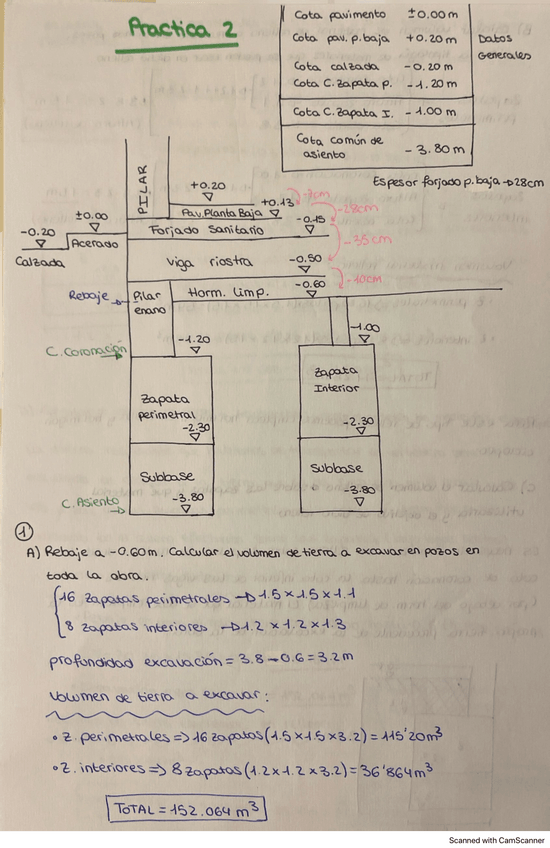 Practica 2
Cota pavimento ±0.00 m
Cota pav. p. baja +0.20 m
Cota calzada -0.20 m
Cota C. Zapata P. -1.20 m
Cota C. Zapata I. -1.00 m
Cota común de
asiento -3.80 m
Datos
Generales
Espesor forjado p. baja → 28cm
PILAR
+0.20
+0.13
-7cm
Pav. Planta Baja
-28cm
±0.00
-0.15
-0.20
Acerado
Forjado Sanitario
-35cm
Calzada
viga riostra
-0.50
-10cm
-0.60
Rebaje
Pilar
enano
Horm. limp.
-1.20
-1.00
C. Coronación
Zapata
perimetral
-2.30
Zapata
Interior
-2.30
Subbase
-3.80
Subbase
-3.80
C. Asiento
1
A) Rebaje a -0.60m. Calcular el volumen de tierra a excavar en pozos en
toda la obra.
16 zapatas perimetrales → 1.5 x 1.5 x 1.1
8 zapatas interiores → 1.2 x 1.2 x 1.3
profundidad excavación = 3.8 - 0.6 = 3.2 m
Volumen de tierra a excavar:
• Z. perimetrales => 16 zapatas (1.5 x 1.5 x 3.2) = 115'20 m³
• Z. interiores => 8 zapatas (1.2 x 1.2 x 3.2) = 36'864 m³
TOTAL = 152.064 m³
Scanned with CamScanner